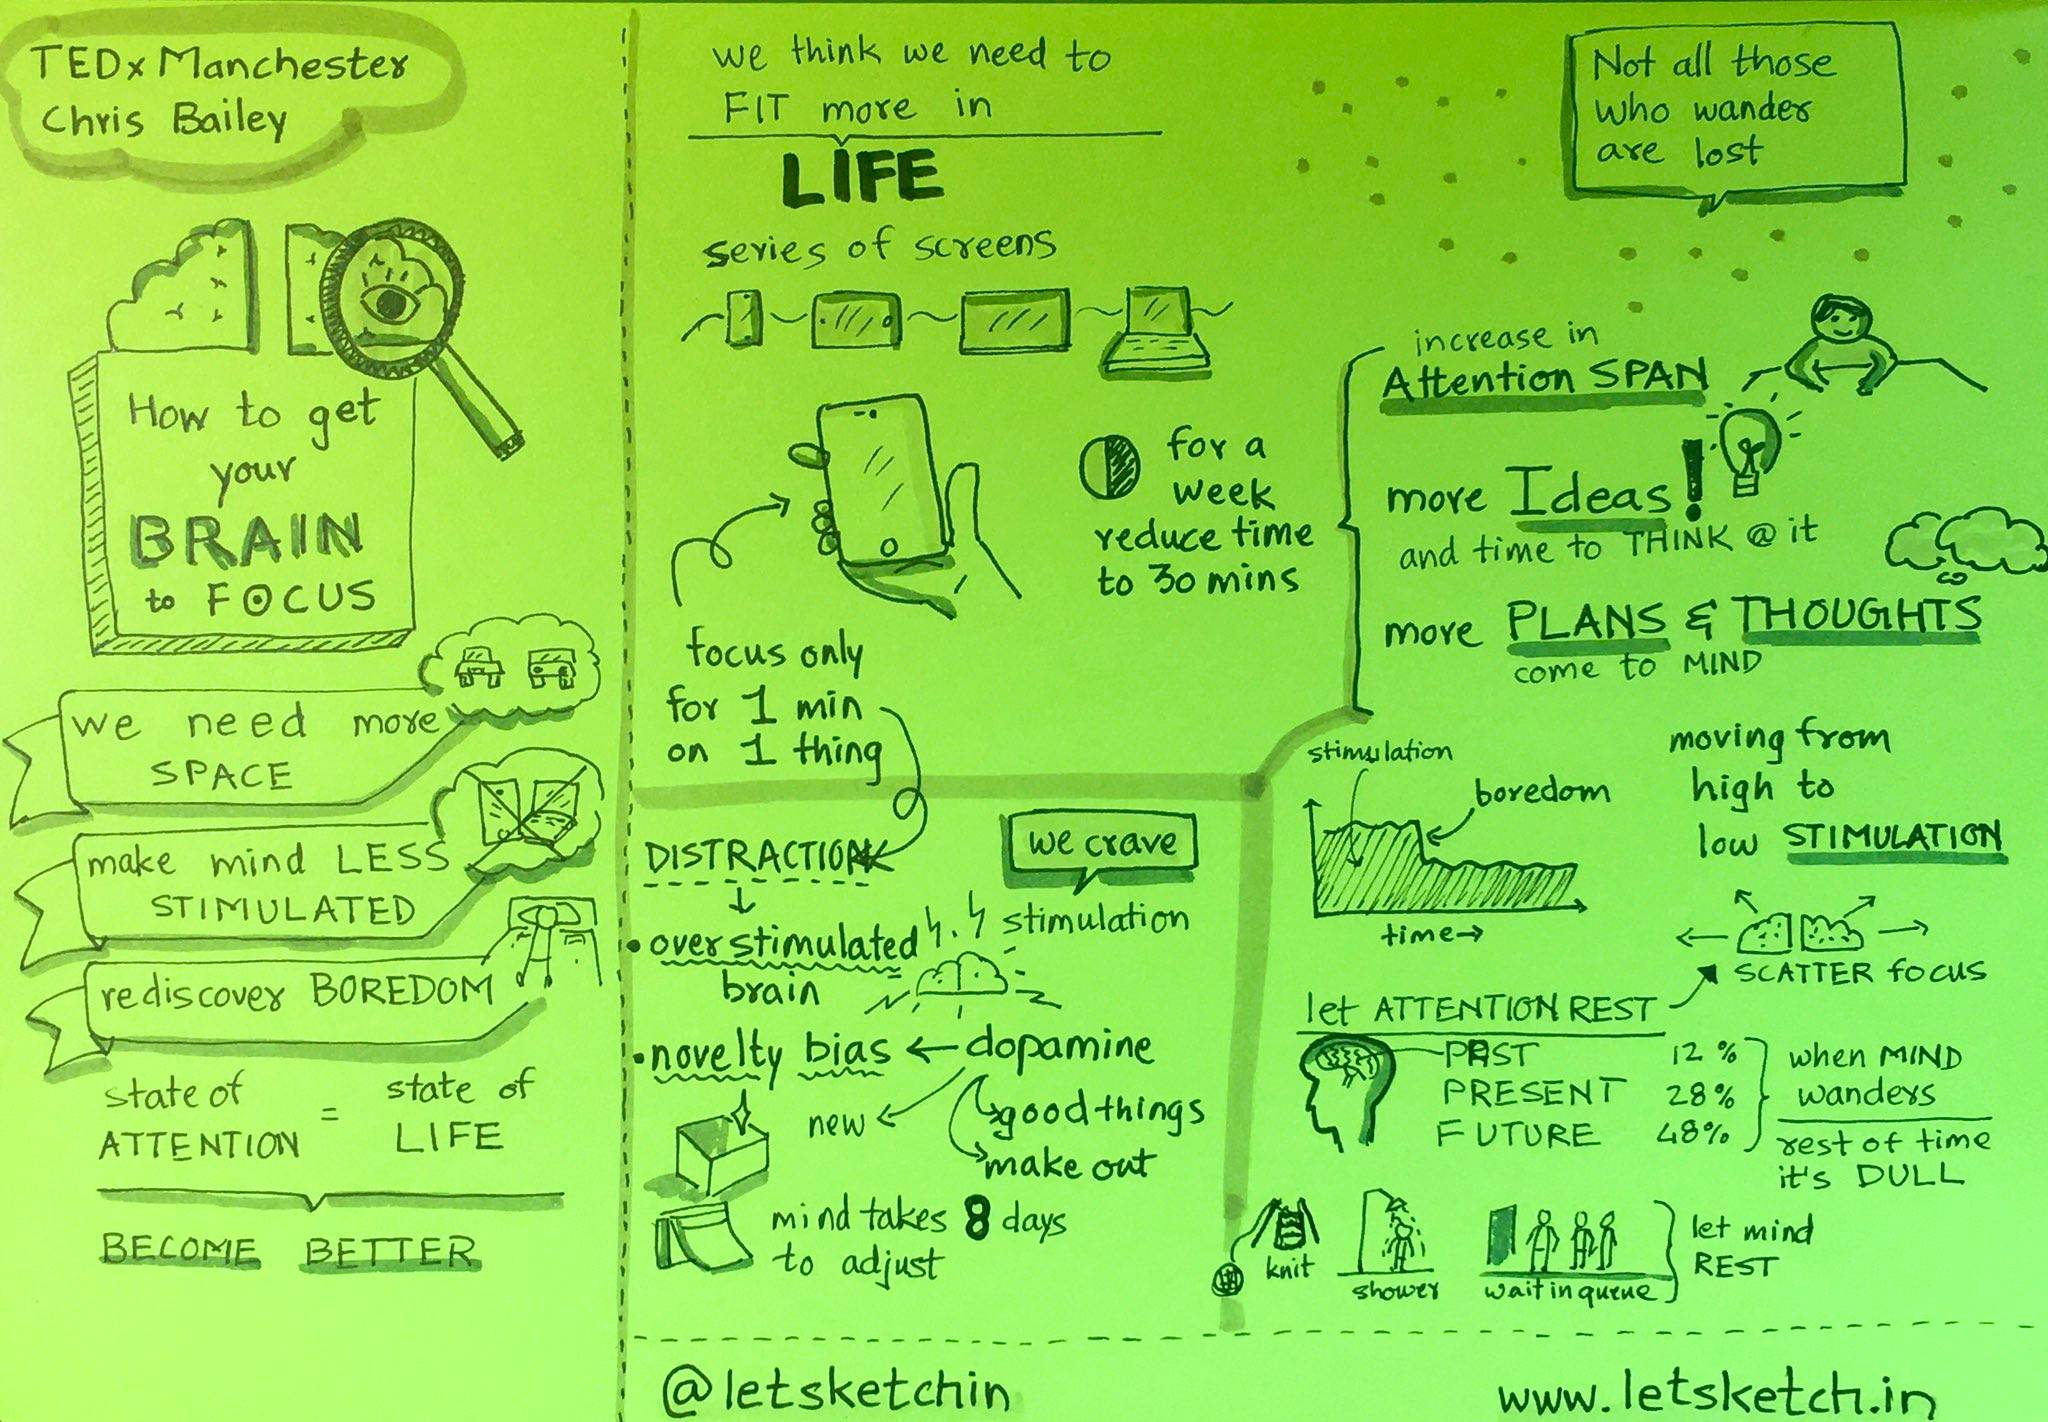 TEDx Manchester
Chris Bailey
How to get
your
BRAIN
to FOCUS
we need more
SPACE
make mind LESS
STIMULATED
rediscover BOREDOM
state of
ATTENTION
=
state of
LIFE
BECOME BETTER
we think we need to
FIT more in
LIFE
series of screens
for a
week
reduce time
to 30 mins
focus only
for 1 min
on 1 thing
DISTRACTION
we crave
stimulation
• overstimulated
brain
• novelty bias ← dopamine
new
good things
make out
mind takes 8 days
to adjust
Not all those
who wander
are lost
increase in
Attention SPAN
more Ideas!
and time to THINK @ it
more PLANS & THOUGHTS
come to MIND
stimulation
boredom
time→
moving from
high to
low STIMULATION
SCATTER focus
let ATTENTION REST
PAST 12%
PRESENT 28%
FUTURE 48%
when MIND
wanders
rest of time
it's DULL
knit
shower
wait in queue
let mind
REST
@letsketchin
www.letsketch.in